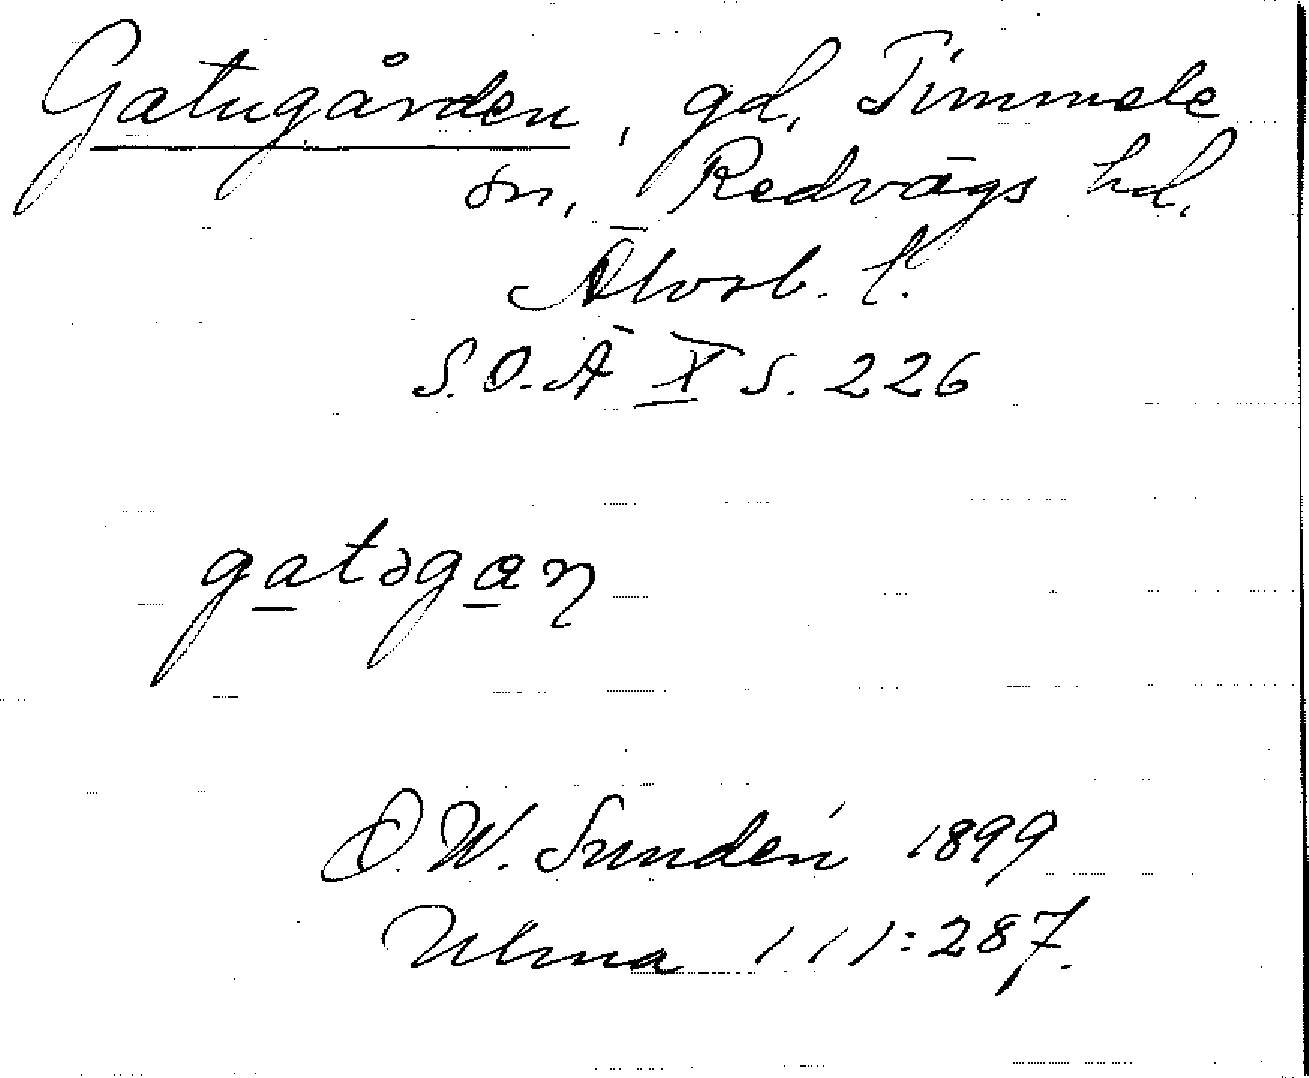 Gatugården, gd, Timmele
sn, Redvägs hd,
Älvsb. l.
S.O.Ä X s. 226
gatəgaɳ
D.W. Sundén 1899
Ulma 111:287.